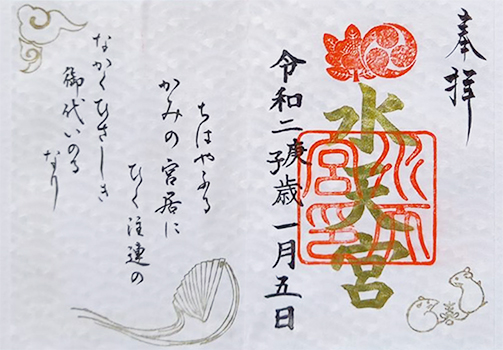 奉拝
水天宮
令和二庚子歳一月五日
ちはやふる
かみの宮居に
ひく注連の
なかくひさしき
御代いのる
なり